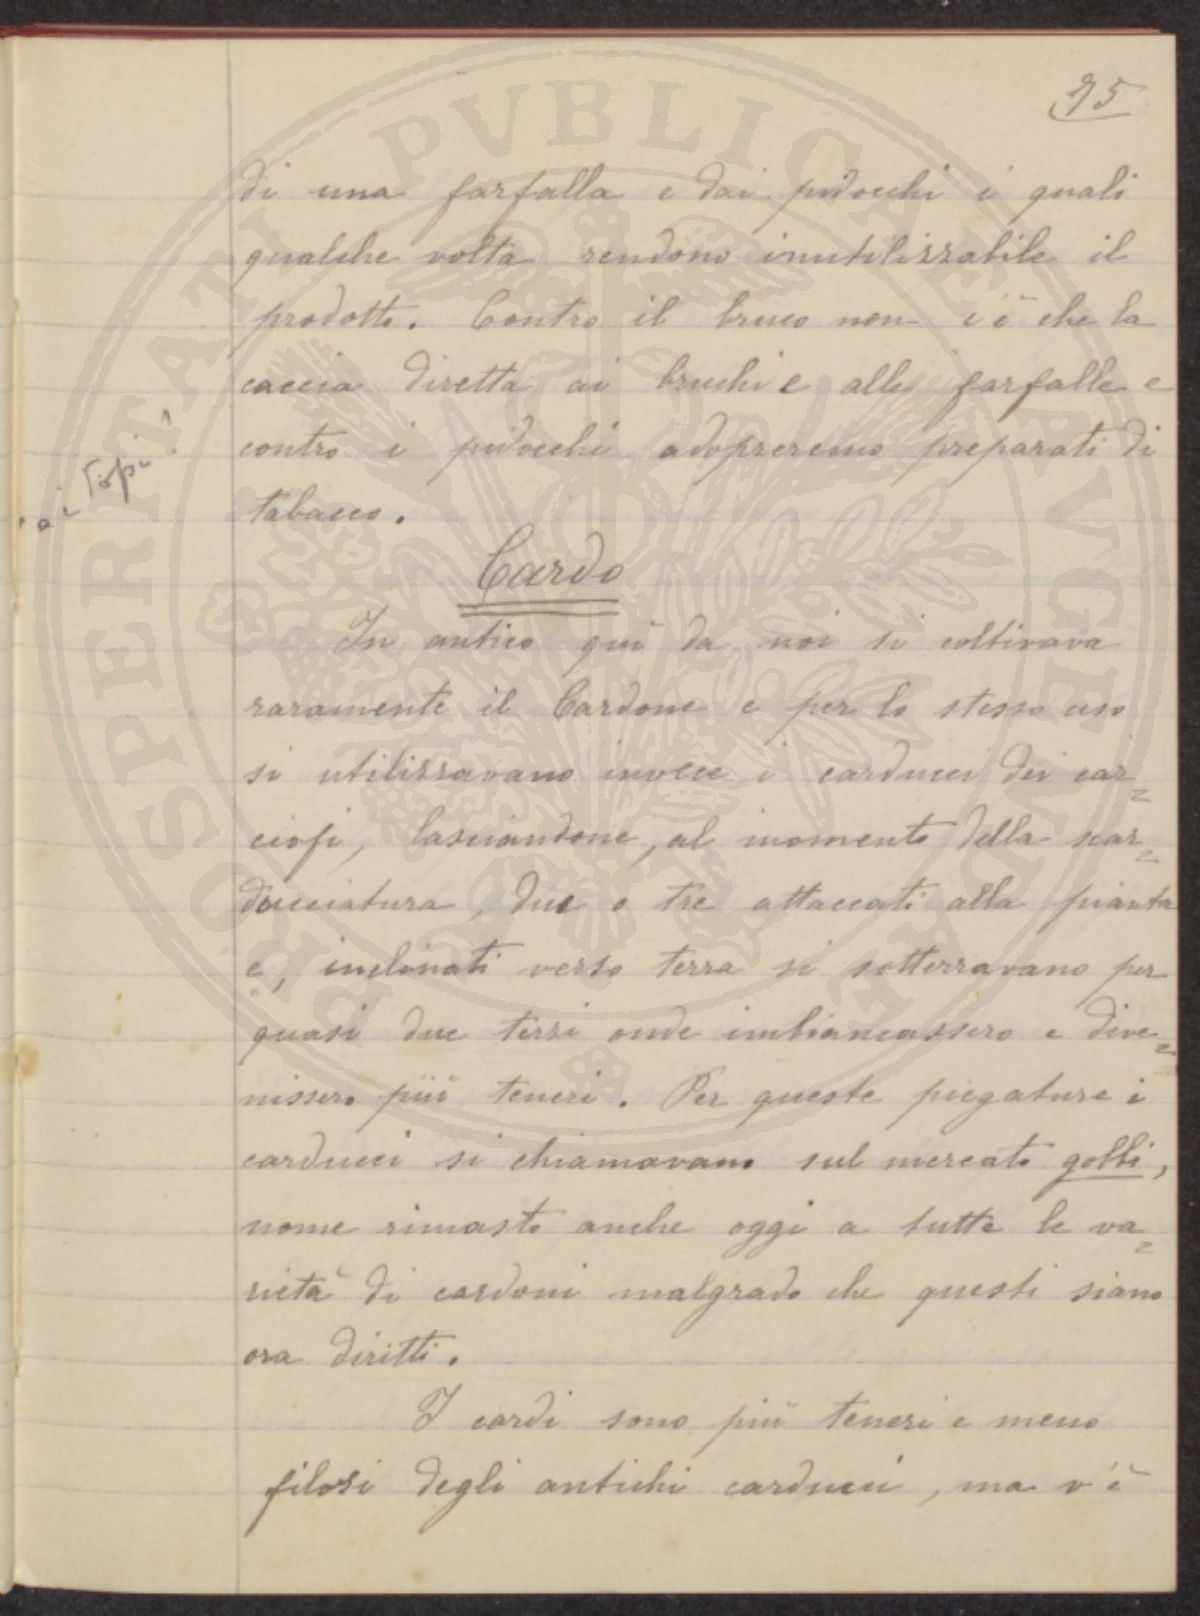 75
di una farfalla e dai pidocchi i quali
qualche volta rendono inutilizzabile il
prodotto. Contro il bruco non c'è che la
caccia diretta ai bruchi e alle farfalle e
contro i pidocchi adopreremo preparati di
tabacco.
ai topi?
Cardo
In antico quì da noi si coltivava
raramente il Cardone e per lo stesso uso
si utilizzavano invece i carducci dei car=
ciofi, lasciandone, al momento della scar=
ducciatura, due o tre attaccati alla pianta
e, inclinati verso terra si sotterravano per
quasi due terzi onde imbiancassero e dive=
nissero più teneri. Per queste piegature i
carducci si chiamavano sul mercato gobbi,
nome rimasto anche oggi a tutte le va=
rietà di cardoni malgrado che questi siano
ora diritti.
I cardi sono più teneri e meno
filosi degli antichi carducci, ma v'è
PROSPERITATI PVBLICAE AVGENDAE